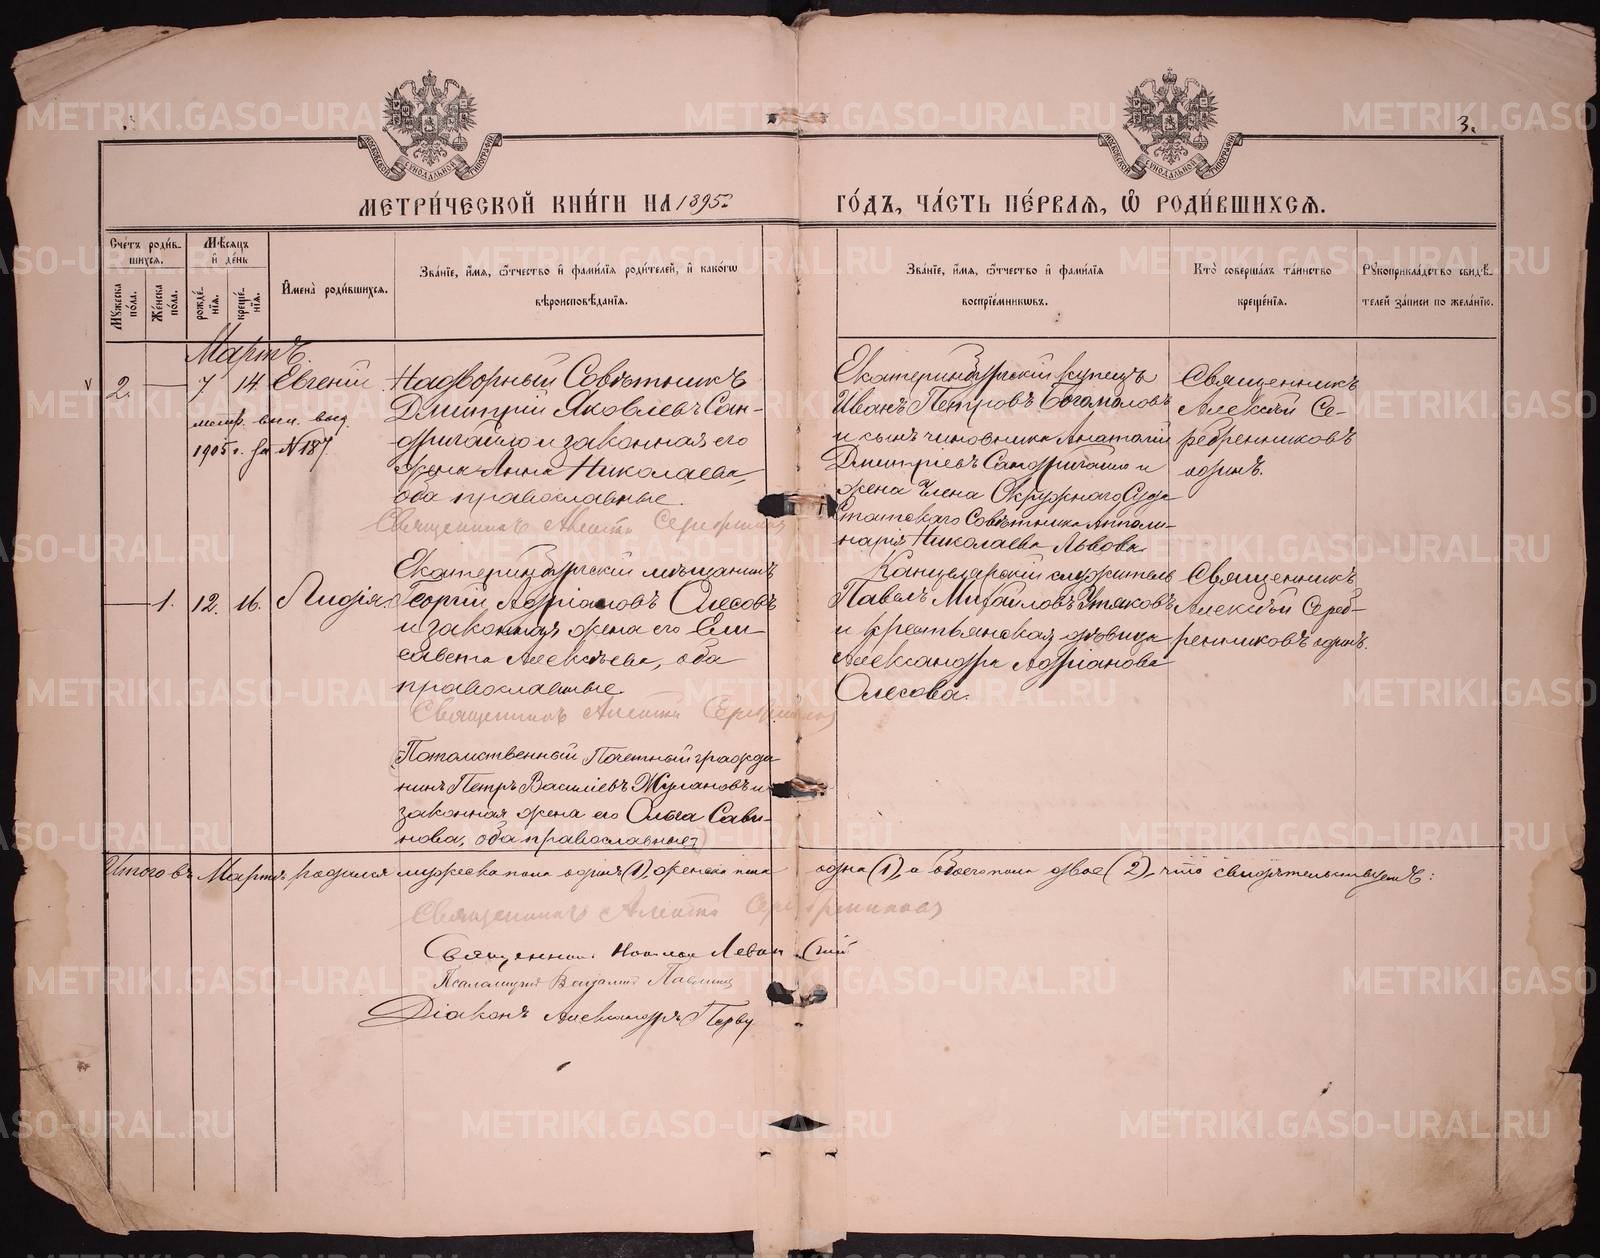 МОСКОВСКОЙ СѴНОДАЛЬНОЙ ТИПОГРАФІИ
МОСКОВСКОЙ СѴНОДАЛЬНОЙ ТИПОГРАФІИ
3.
МЕТРИ́ЧЕСКОЙ КНИ́ГИ НА 1895
ГО́ДЪ, ЧА́СТЬ ПЕ́РВАЯ, Ѡ РОДИ́ВШИХСЯ.
Сче́тъ роди́в-
шихся.
Мѣ́сяцъ
и де́нь
Му́жеска
по́ла.
Же́нска
по́ла.
рожде́-
нія.
креще́-
нія.
Имена̀ роди́вшихся.
Зва́ніе, и́мя, ѻ́тчество и фами́лія роди́телей, и како́гѡ
вѣроисповѣ́данія.
Зва́ніе, и́мя, ѻ́тчество и фами́лія
воспріе́мникѡвъ.
Кто̀ соверша́лъ та́инство
креще́нія.
Рꙋкоприкла́дство свидѣ́-
телей за́писи по жела́нію.
Мартъ.
2. — 7 14 Евгеній
метр. вып. выд.
1905 г. за №187
Надворный Совѣтникъ
Дмитрій Яковлевъ Сан-
дригайло и законная его
жена Анна Николаева,
оба православные.
Священникъ Алексѣй Серебренников
Екатеринбургскій купецъ
Иванъ Петровъ Богомоловъ
и сынъ чиновника Анатолій
Дмитріевъ Сандригайло и
жена Члена Окружнаго Суда
Статскаго Совѣтника Апполи-
нарія Николаева Львова.
Священникъ
Алексѣй Се-
ребренниковъ
одинъ.
— 1. 12. 16. Лидія
Екатеринбургскій мѣщанинъ
Георгій Адріановъ Олесовъ
и законная жена его Ели-
савета Алексѣева, оба
православные.
Священникъ Алексѣй Серебренников
Канцелярскій служитель
Павелъ Михайловъ Утяковъ
и крестьянская дѣвица
Александра Адріанова
Олесова.
Священникъ
Алексѣй Сереб-
ренниковъ одинъ.
(Потомственный Почетный гражда-
нинъ Петръ Василіевъ Жулановъ и
законная жена его Ольга Сави-
нова, оба православные)
Итого въ Мартѣ родился мужеска пола одинъ (1), женска пола одна (1), а обоего пола двое (2), что свидѣтельствуемъ:
Священникъ Алексѣй Серебренниковъ
Священникъ
Псаломщикъ
Діаконъ Александръ